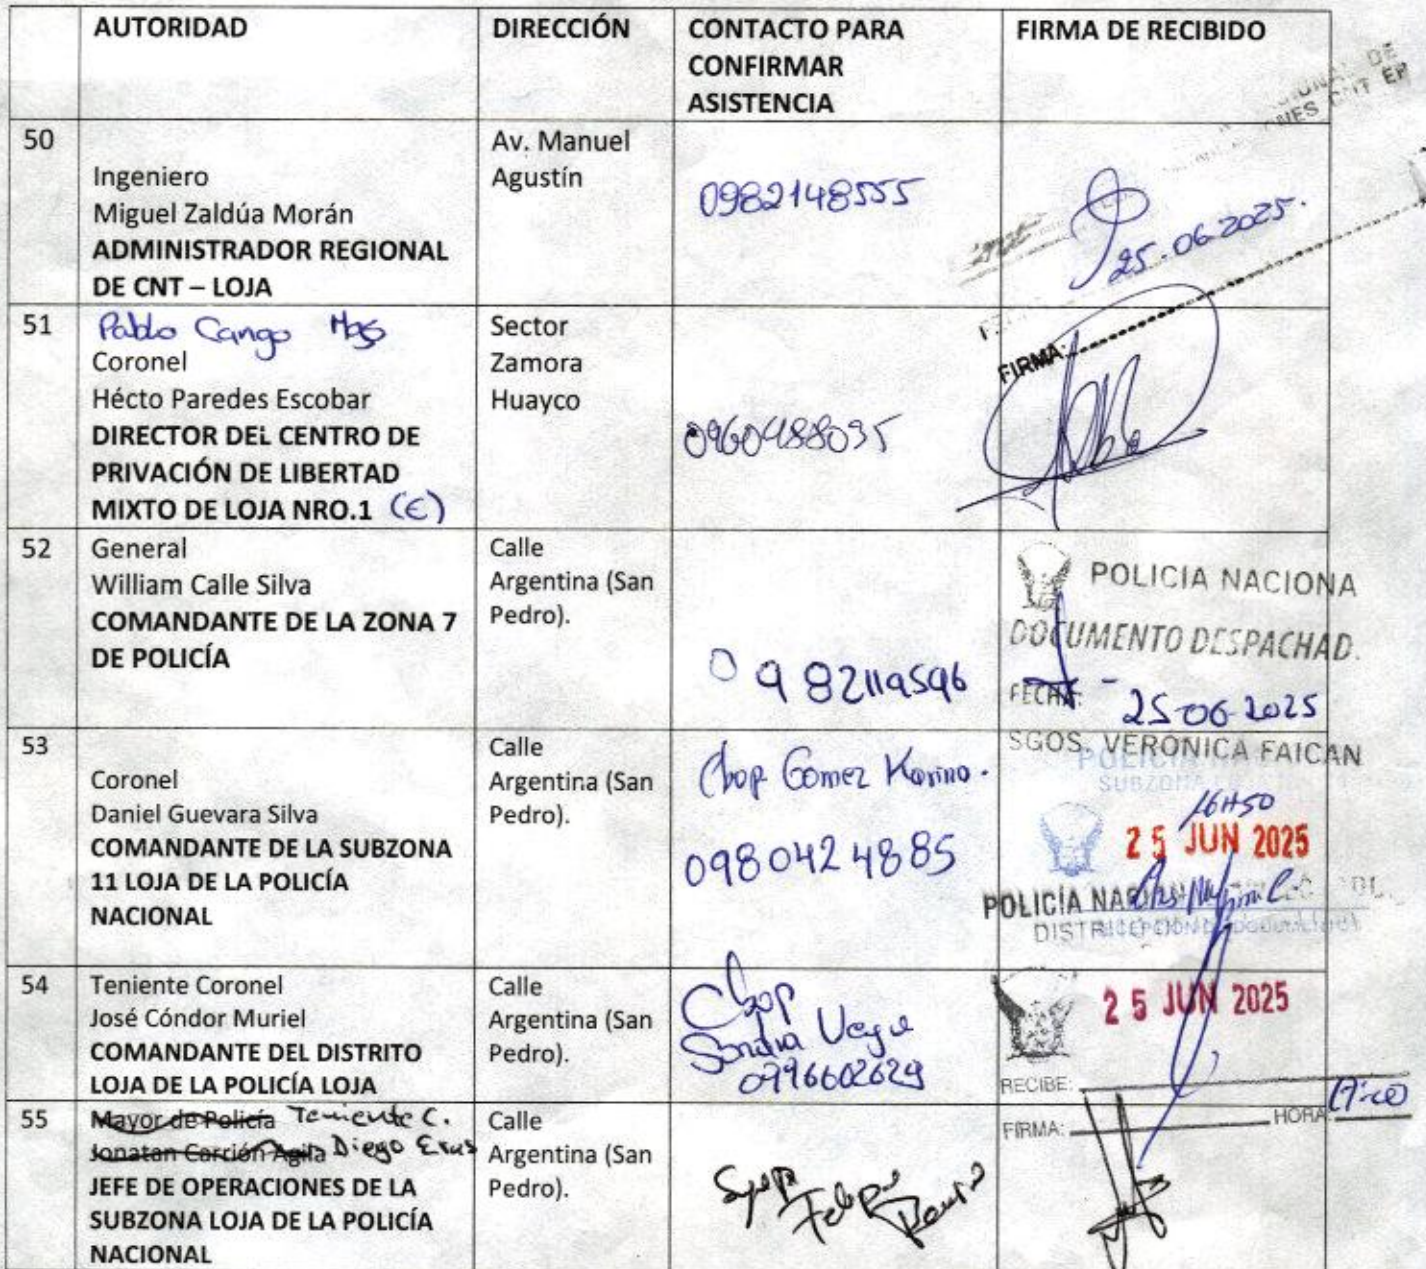 AUTORIDAD
DIRECCIÓN
CONTACTO PARA
CONFIRMAR
ASISTENCIA
FIRMA DE RECIBIDO
50
Ingeniero
Miguel Zaldúa Morán
ADMINISTRADOR REGIONAL
DE CNT – LOJA
Av. Manuel
Agustín
0982148555
25-06-2025.
51
Pablo Cango
Coronel
Hécto Paredes Escobar
DIRECTOR DEL CENTRO DE
PRIVACIÓN DE LIBERTAD
MIXTO DE LOJA NRO.1 (E)
Sector
Zamora
Huayco
FIRMA:
52
General
William Calle Silva
COMANDANTE DE LA ZONA 7
DE POLICÍA
Calle
Argentina (San
Pedro).
0982119596
POLICIA NACIONA
DOCUMENTO DESPACHAD.
FECHA: 25-06-2025
SGOS. VERONICA FAICAN
53
Coronel
Daniel Guevara Silva
COMANDANTE DE LA SUBZONA
11 LOJA DE LA POLICÍA
NACIONAL
Calle
Argentina (San
Pedro).
Cbop Gomez Karina.
0980424885
SUBZONA
16H50
25 JUN 2025
POLICÍA
54
Teniente Coronel
José Cóndor Muriel
COMANDANTE DEL DISTRITO
LOJA DE LA POLICÍA LOJA
Calle
Argentina (San
Pedro).
Cbop
0996602629
25 JUN 2025
RECIBE:
FIRMA:
HORA
55
Mayor de Policía Teniente C.
Jonatan Carrión Agila Diego Eras
JEFE DE OPERACIONES DE LA
SUBZONA LOJA DE LA POLICÍA
NACIONAL
Calle
Argentina (San
Pedro).